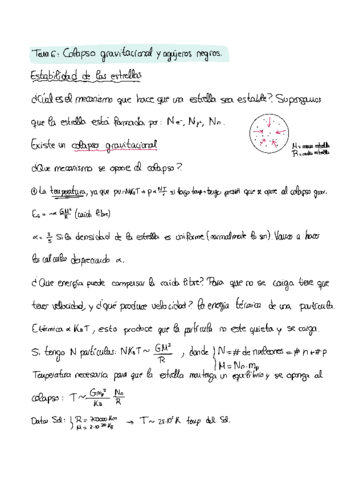 Tema 6: Colapso gravitacional y agujeros negros.
Estabilidad de las estrellas
¿Cúal es el mecanismo que hace que una estrella sea estable? Supongamos
que la estrella está formada por: Ne-, Np+, Nn.
M = masa estrella
R = radio estrella
Existe un colapso gravitacional
¿Que mecanismo se opone al colapso?
La temperatura, ya que PV=NKBT → P ∝ NT/V si tengo temp → tengo presión que se opone al colapso grav.
EG = -α GM²/R (caida libre)
α = 3/5 Si la densidad de la estrella es uniforme (normalmente lo son). Vamos a hacer
los calculos despreciando α.
¿Que energía puede compensar la caida libre? Para que no se caiga tiene que
tener velocidad, y ¿qué produce velocidad? la energía térmica de una partícula.
Etérmica ∝ KBT, esto produce que la partícula no este quieta y se caiga.
Si tengo N partículas: NKBT ~ GM²/R, donde { N = # de nucleones = # n + # p
M = Nn·mp
Temperatura necesaria para que la estrella mantenga un equilibrio y se oponga al
colapso: T ~ Gmp²/KB Nn/R
Datos Sol: { R = 700000 Km
M = 2·10³⁰ Kg → T ~ temp del Sol.